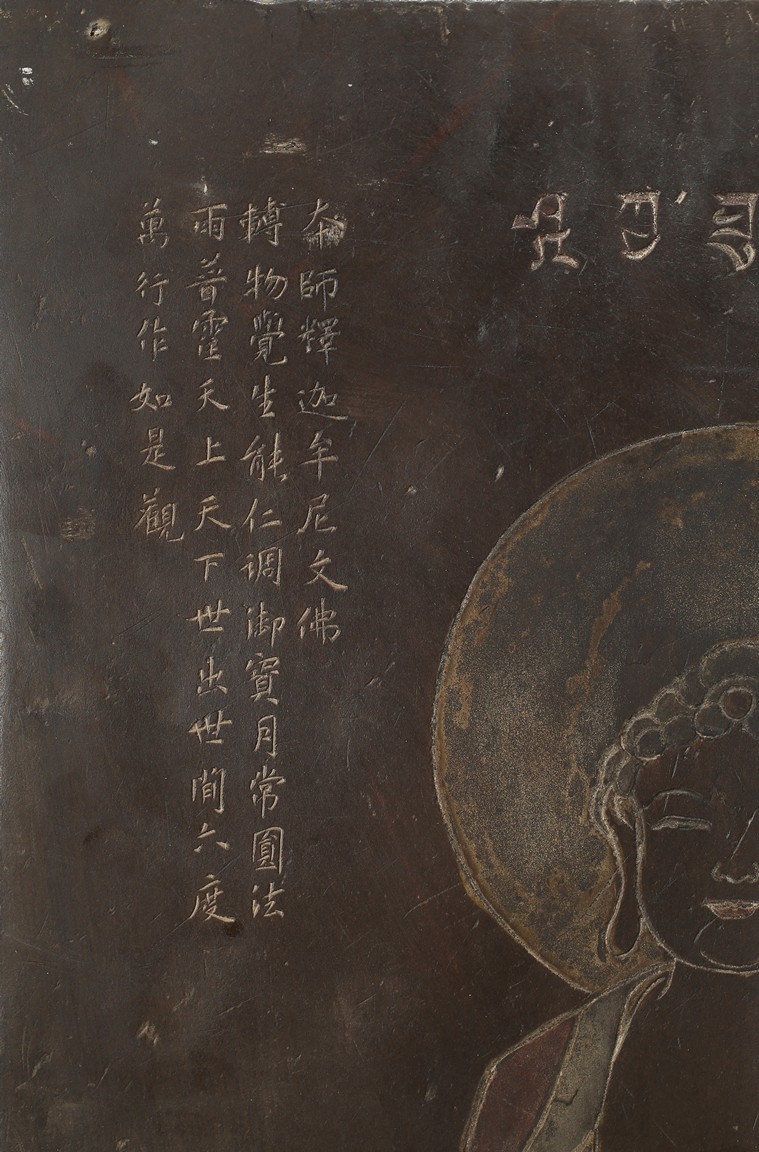 本師釋迦牟尼文佛
轉物覺生能仁调御寶月常圓法
雨普霑天上天下世出世間六度
萬行作如是觀